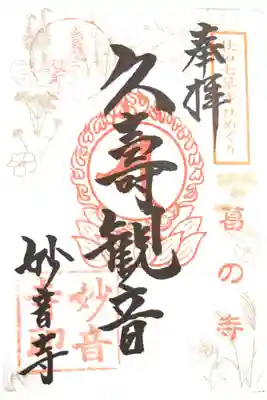 奉拝
葛の寺
久壽観音
妙音寺
妙音